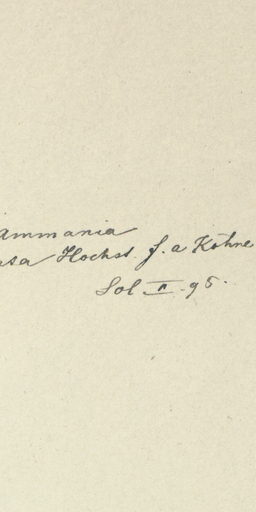 ammania
Hochst. f. a Köhne
Sol II. 95.